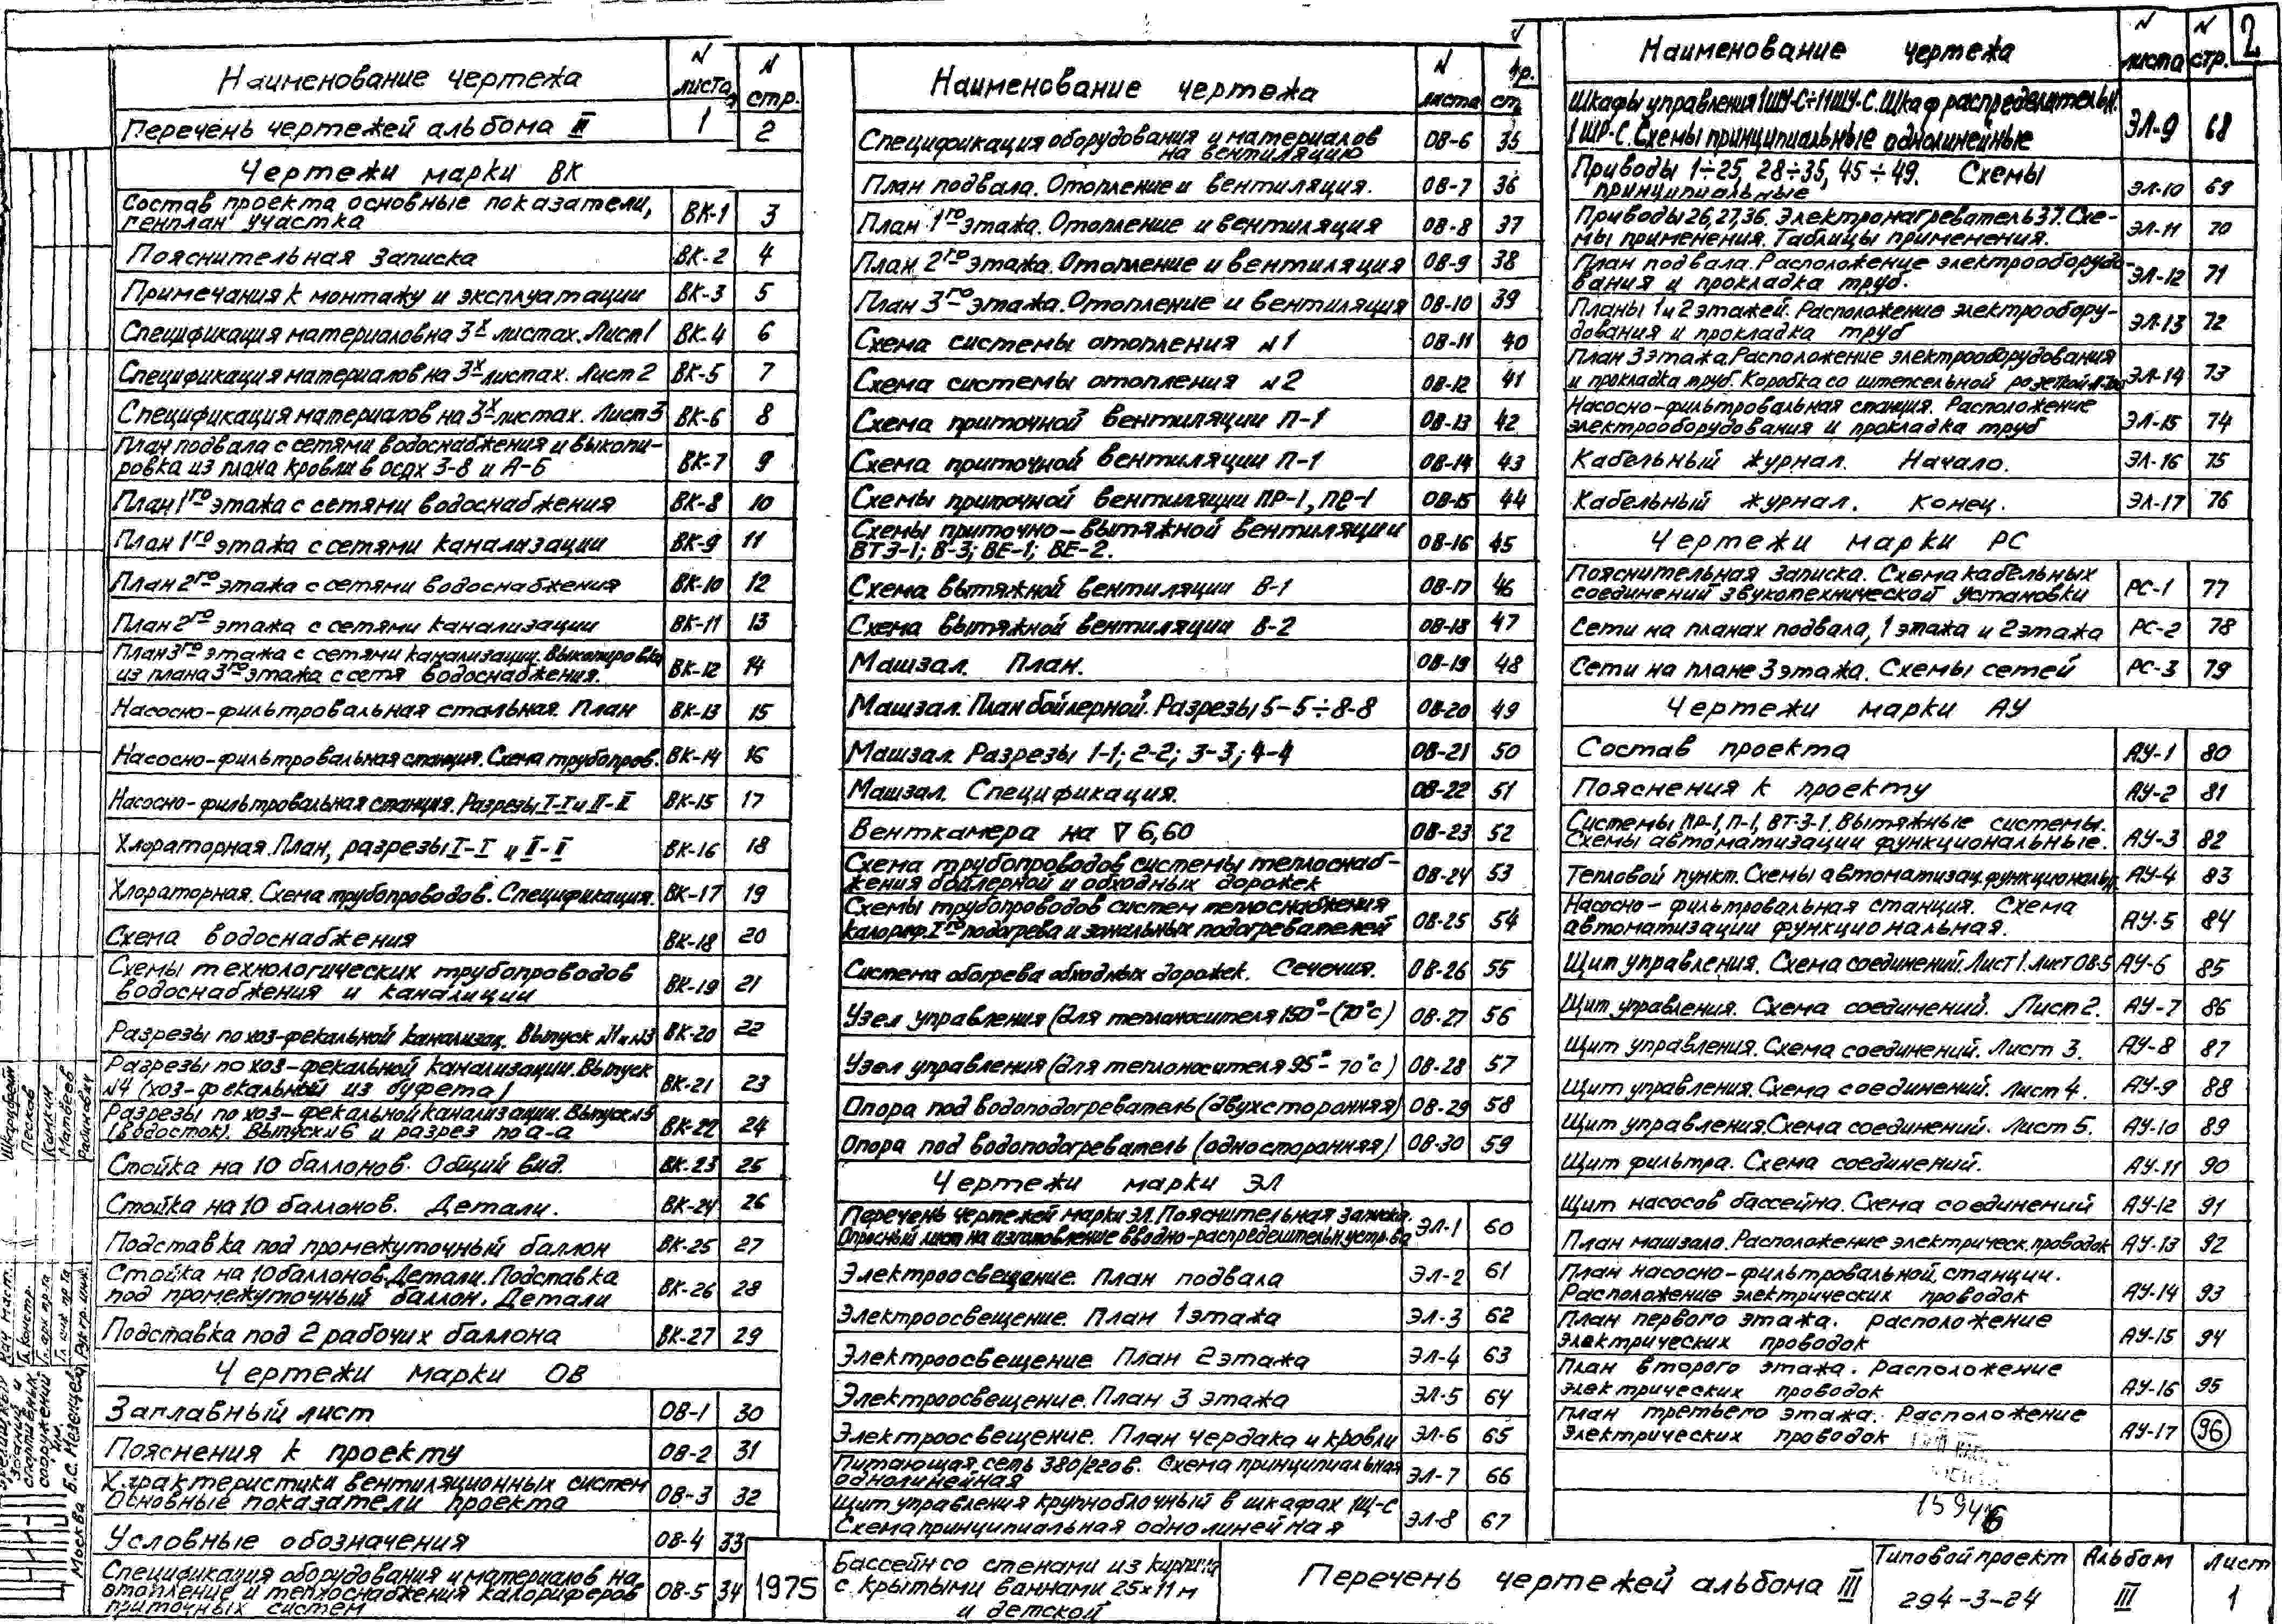 2
Наименование чертежа
N листа
N стр.
Перечень чертежей альбома III 1 2
Чертежи марки ВК
Состав проекта основные показатели,
генплан участка ВК-1 3
Пояснительная записка ВК-2 4
Примечания к монтажу и эксплуатации ВК-3 5
Спецификация материалов на 3х листах. Лист 1 ВК-4 6
Спецификация материалов на 3х листах. Лист 2 ВК-5 7
Спецификация материалов на 3х листах. Лист 3 ВК-6 8
План подвала с сетями водоснабжения и выкопи-
ровка из плана кровли в осях 3-8 и А-Б ВК-7 9
План 1го этажа с сетями водоснабжения ВК-8 10
План 1го этажа с сетями канализации ВК-9 11
План 2го этажа с сетями водоснабжения ВК-10 12
План 2го этажа с сетями канализации ВК-11 13
План 3го этажа с сетями канализации. Выкопировка
из плана 3го этажа с сетя водоснабжения. ВК-12 14
Насосно-фильтровальная стальная. План ВК-13 15
Насосно-фильтровальная станция. Схема трубопров. ВК-14 16
Насосно-фильтровальная станция. Разрезы I-I и II-II ВК-15 17
Хлораторная. План, разрезы I-I и II-II ВК-16 18
Хлораторная. Схема трубопроводов. Спецификация. ВК-17 19
Схема водоснабжения ВК-18 20
Схемы технологических трубопроводов
водоснабжения и каналиции ВК-19 21
Разрезы по хоз-фекальной канализац. Выпуск N1 и N3 ВК-20 22
Разрезы по хоз-фекальной канализации. Выпуск
N4 (хоз-фекальный из буфета) ВК-21 23
Разрезы по хоз-фекальной канализации. Выпуск N5
(водосток). Выпуск N6 и разрез по а-а ВК-22 24
Стойка на 10 баллонов. Общий вид. ВК-23 25
Стойка на 10 баллонов. Детали. ВК-24 26
Подставка под промежуточный баллон ВК-25 27
Стойка на 10 баллонов. Детали. Подставка
под промежуточный баллон. Детали ВК-26 28
Подставка под 2 рабочих баллона ВК-27 29
Чертежи марки ОВ
Заглавный лист ОВ-1 30
Пояснения к проекту ОВ-2 31
Характеристики вентиляционных систем
Основные показатели проекта ОВ-3 32
Условные обозначения ОВ-4 33
Спецификация оборудования и материалов на
отопление и теплоснабжения калориферов
приточных систем ОВ-5 34
Наименование чертежа
N листа
Спецификация оборудования и материалов
на вентиляцию ОВ-6 35
План подвала. Отопление и вентиляция. ОВ-7 36
План 1го этажа. Отопление и вентиляция ОВ-8 37
План 2го этажа. Отопление и вентиляция ОВ-9 38
План 3го этажа. Отопление и вентиляция ОВ-10 39
Схема системы отопления N1 ОВ-11 40
Схема системы отопления N2 ОВ-12 41
Схема приточной вентиляции П-1 ОВ-13 42
Схема приточной вентиляции П-1 ОВ-14 43
Схемы приточной вентиляции ПР-1, ПР-1 ОВ-15 44
Схемы приточно-вытяжной вентиляции
ВТЗ-1; В-3; ВЕ-1; ВЕ-2. ОВ-16 45
Схема вытяжной вентиляции В-1 ОВ-17 46
Схема вытяжной вентиляции В-2 ОВ-18 47
Машзал. План. ОВ-19 48
Машзал. План бойлерной. Разрезы 5-5÷8-8 ОВ-20 49
Машзал. Разрезы 1-1; 2-2; 3-3; 4-4 ОВ-21 50
Машзал. Спецификация. ОВ-22 51
Венткамера на ∇ 6,60 ОВ-23 52
Схема трубопроводов системы теплоснаб-
жения бойлерной и обходных дорожек ОВ-24 53
Схемы трубопроводов систем теплоснабжения
калориф. Iго подогрева и зональных подогревателей ОВ-25 54
Система обогрева обходных дорожек. Сечения. ОВ-26 55
Узел управления (для теплоносителя 150°-(70°с) ОВ-27 56
Узел управления (для теплоносителя 95°-70°с) ОВ-28 57
Опора под водоподогреватель (двухсторонняя) ОВ-29 58
Опора под водоподогреватель (односторонняя) ОВ-30 59
Чертежи марки ЭЛ
Перечень чертежей марки ЭЛ. Пояснительная записка.
Опросный лист на изготовление вводно-распределительн. устр-ва ЭЛ-1 60
Электроосвещение План подвала ЭЛ-2 61
Электроосвещение. План 1 этажа ЭЛ-3 62
Электроосвещение План 2 этажа ЭЛ-4 63
Электроосвещение. План 3 этажа ЭЛ-5 64
Электроосвещение. План чердака и кровли ЭЛ-6 65
Питающая сеть 380/220в. Схема принципиальная
однолинейная ЭЛ-7 66
Щит управления крупноблочный в шкафах 1Щ-С
Схема принципиальная однолинейная ЭЛ-8 67
Наименование чертежа
N листа
N стр.
Шкафы управления 1ШУ-С÷11ШУ-С. Шкаф распределительн.
1ШР-С. Схемы принципиальные однолинейные ЭЛ-9 68
Приводы 1÷25, 28÷35, 45÷49. Схемы
принципиальные ЭЛ-10 69
Приводы 26, 27, 36. Электронагреватель 37. Схе-
мы применения. Таблицы применения. ЭЛ-11 70
План подвала. Расположение электрооборудо-
вания и прокладка труб. ЭЛ-12 71
Планы 1 и 2 этажей. Расположение электрообору-
дования и прокладка труб ЭЛ-13 72
План 3 этажа. Расположение электрооборудования
и прокладка труб. Коробка со штепсельной розеткой ЭЛ-14 73
Насосно-фильтровальная станция. Расположение
электрооборудования и прокладка труб ЭЛ-15 74
Кабельный журнал. Начало. ЭЛ-16 75
Кабельный журнал. Конец. ЭЛ-17 76
Чертежи марки РС
Пояснительная записка. Схема кабельных
соединений звукотехнической установки РС-1 77
Сети на планах подвала, 1 этажа и 2 этажа РС-2 78
Сети на плане 3 этажа. Схемы сетей РС-3 79
Чертежи марки АУ
Состав проекта АУ-1 80
Пояснения к проекту АУ-2 81
Системы ПР-1, П-1, ВТ-3-1. Вытяжные системы.
Схемы автоматизации функциональные. АУ-3 82
Тепловой пункт. Схемы автоматизац. функциональн. АУ-4 83
Насосно-фильтровальная станция. Схема
автоматизации функциональная. АУ-5 84
Щит управления. Схема соединений. Лист 1. Лист ОВ-5 АУ-6 85
Щит управления. Схема соединений. Лист 2. АУ-7 86
Щит управления. Схема соединений. Лист 3. АУ-8 87
Щит управления. Схема соединений. Лист 4. АУ-9 88
Щит управления. Схема соединений. Лист 5. АУ-10 89
Щит фильтра. Схема соединений. АУ-11 90
Щит насосов бассейна. Схема соединений АУ-12 91
План машзала. Расположение электрическ. проводок АУ-13 92
План насосно-фильтровальной станции.
Расположение электрических проводок АУ-14 93
План первого этажа. Расположение
электрических проводок АУ-15 94
План второго этажа. Расположение
электрических проводок АУ-16 95
План третьего этажа. Расположение
электрических проводок АУ-17 96
1975
Бассейн со стенами из кирпича
с крытыми ваннами 25×11 м
и детской
Перечень чертежей альбома III
Типовой проект
294-3-24
Альбом
III
Лист
1
Песков
Камкин
Матвеев
Рабинович
Москва